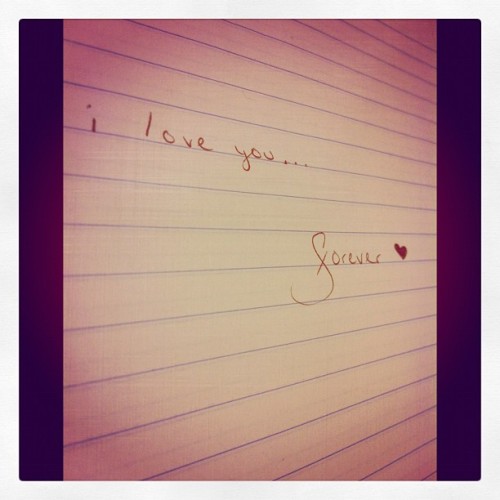 i love you...
forever ♥